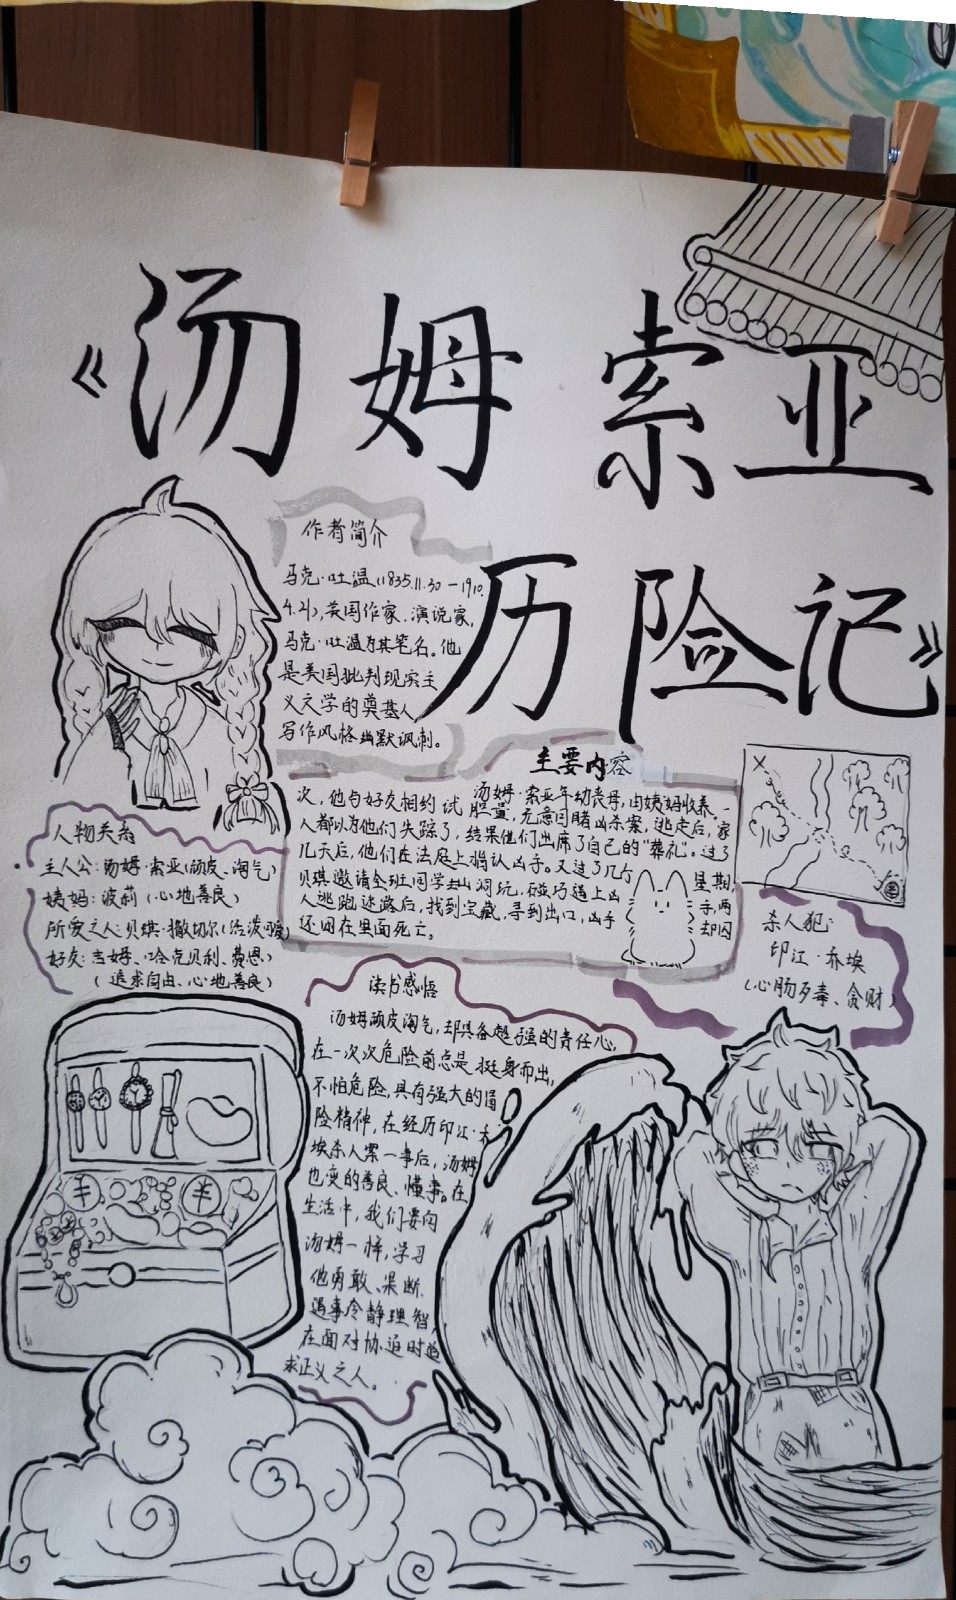 《汤姆索亚
历险记》
作者简介
马克·吐温(1835.11.30-1910.
4.21),英国作家、演说家,
马克·吐温为其笔名。他
是美国批判现实主
义文学的奠基人,
写作风格幽默讽刺。
主要内容
汤姆·索亚年幼丧母,由姨妈收养。一
次,他与好友相约试胆量,无意目睹凶杀案,逃走后,家
人都以为他们失踪了,结果他们出席了自己的“葬礼”。过了
几天后,他们在法庭上指认凶手。又过了几个星期,
贝琪邀请全班同学去山洞玩,碰巧遇上凶手,两
人逃跑迷路后,找到宝藏,寻到出口,凶手却因
还困在里面死亡。
人物关系
主人公:汤姆·索亚(顽皮、淘气)
姨妈:波莉(心地善良)
所爱之人:贝琪·撒切尔(活泼可爱)
好友:吉姆、哈克贝利、费恩)
(追求自由、心地善良)
杀人犯:
印江·乔埃
(心肠歹毒、贪财)
读书感悟
汤姆顽皮淘气,却具备超强的责任心,
在一次次危险前总是挺身而出,
不怕危险,具有强大的冒
险精神,在经历印江·乔
埃杀人案一事后,汤姆
也变的善良、懂事。在
生活中,我们要向
汤姆一样,学习
他勇敢、果断、
遇事冷静理智,
在面对协迫时追
求正义之人。